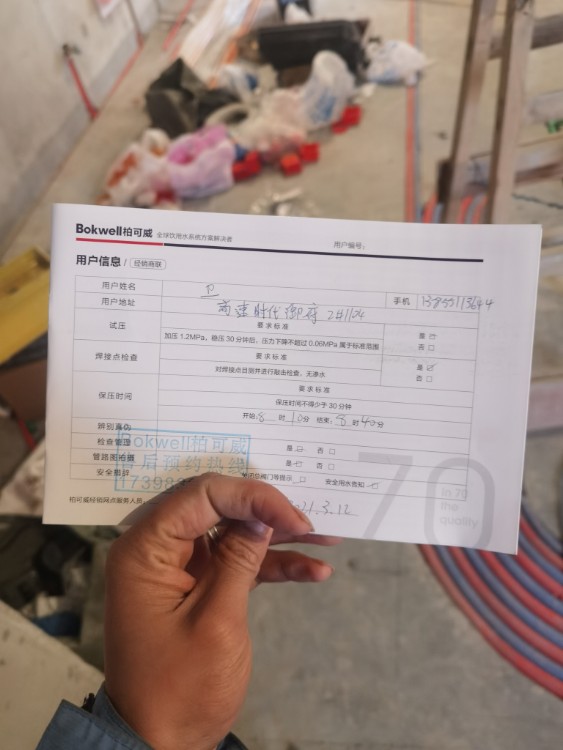 Bokwell柏可威 全球饮用水系统方案解决者
用户编号:
用户信息/ 经销商联
用户姓名
手机
用户地址 高速时代御府 2#1124
试压 要求标准 是
加压 1.2MPa，稳压 30 分钟后，压力下降不超过 0.06MPa 属于标准范围 否
焊接点检查 要求标准 是
对焊接点目测并进行敲击检查，无渗水 否
保压时间 要求标准
保压时间不得少于 30 分钟
开始: 8 时 10 分 结束: 8 时 40 分
辨别真伪
检查管理 是 否
管路图拍摄 是 否
安全提示 关闭总阀门等提示 安全用水告知
Bokwell柏可威
售后预约热线
柏可威经销网点服务人员
2021.3.12
70
in 70
the
quality